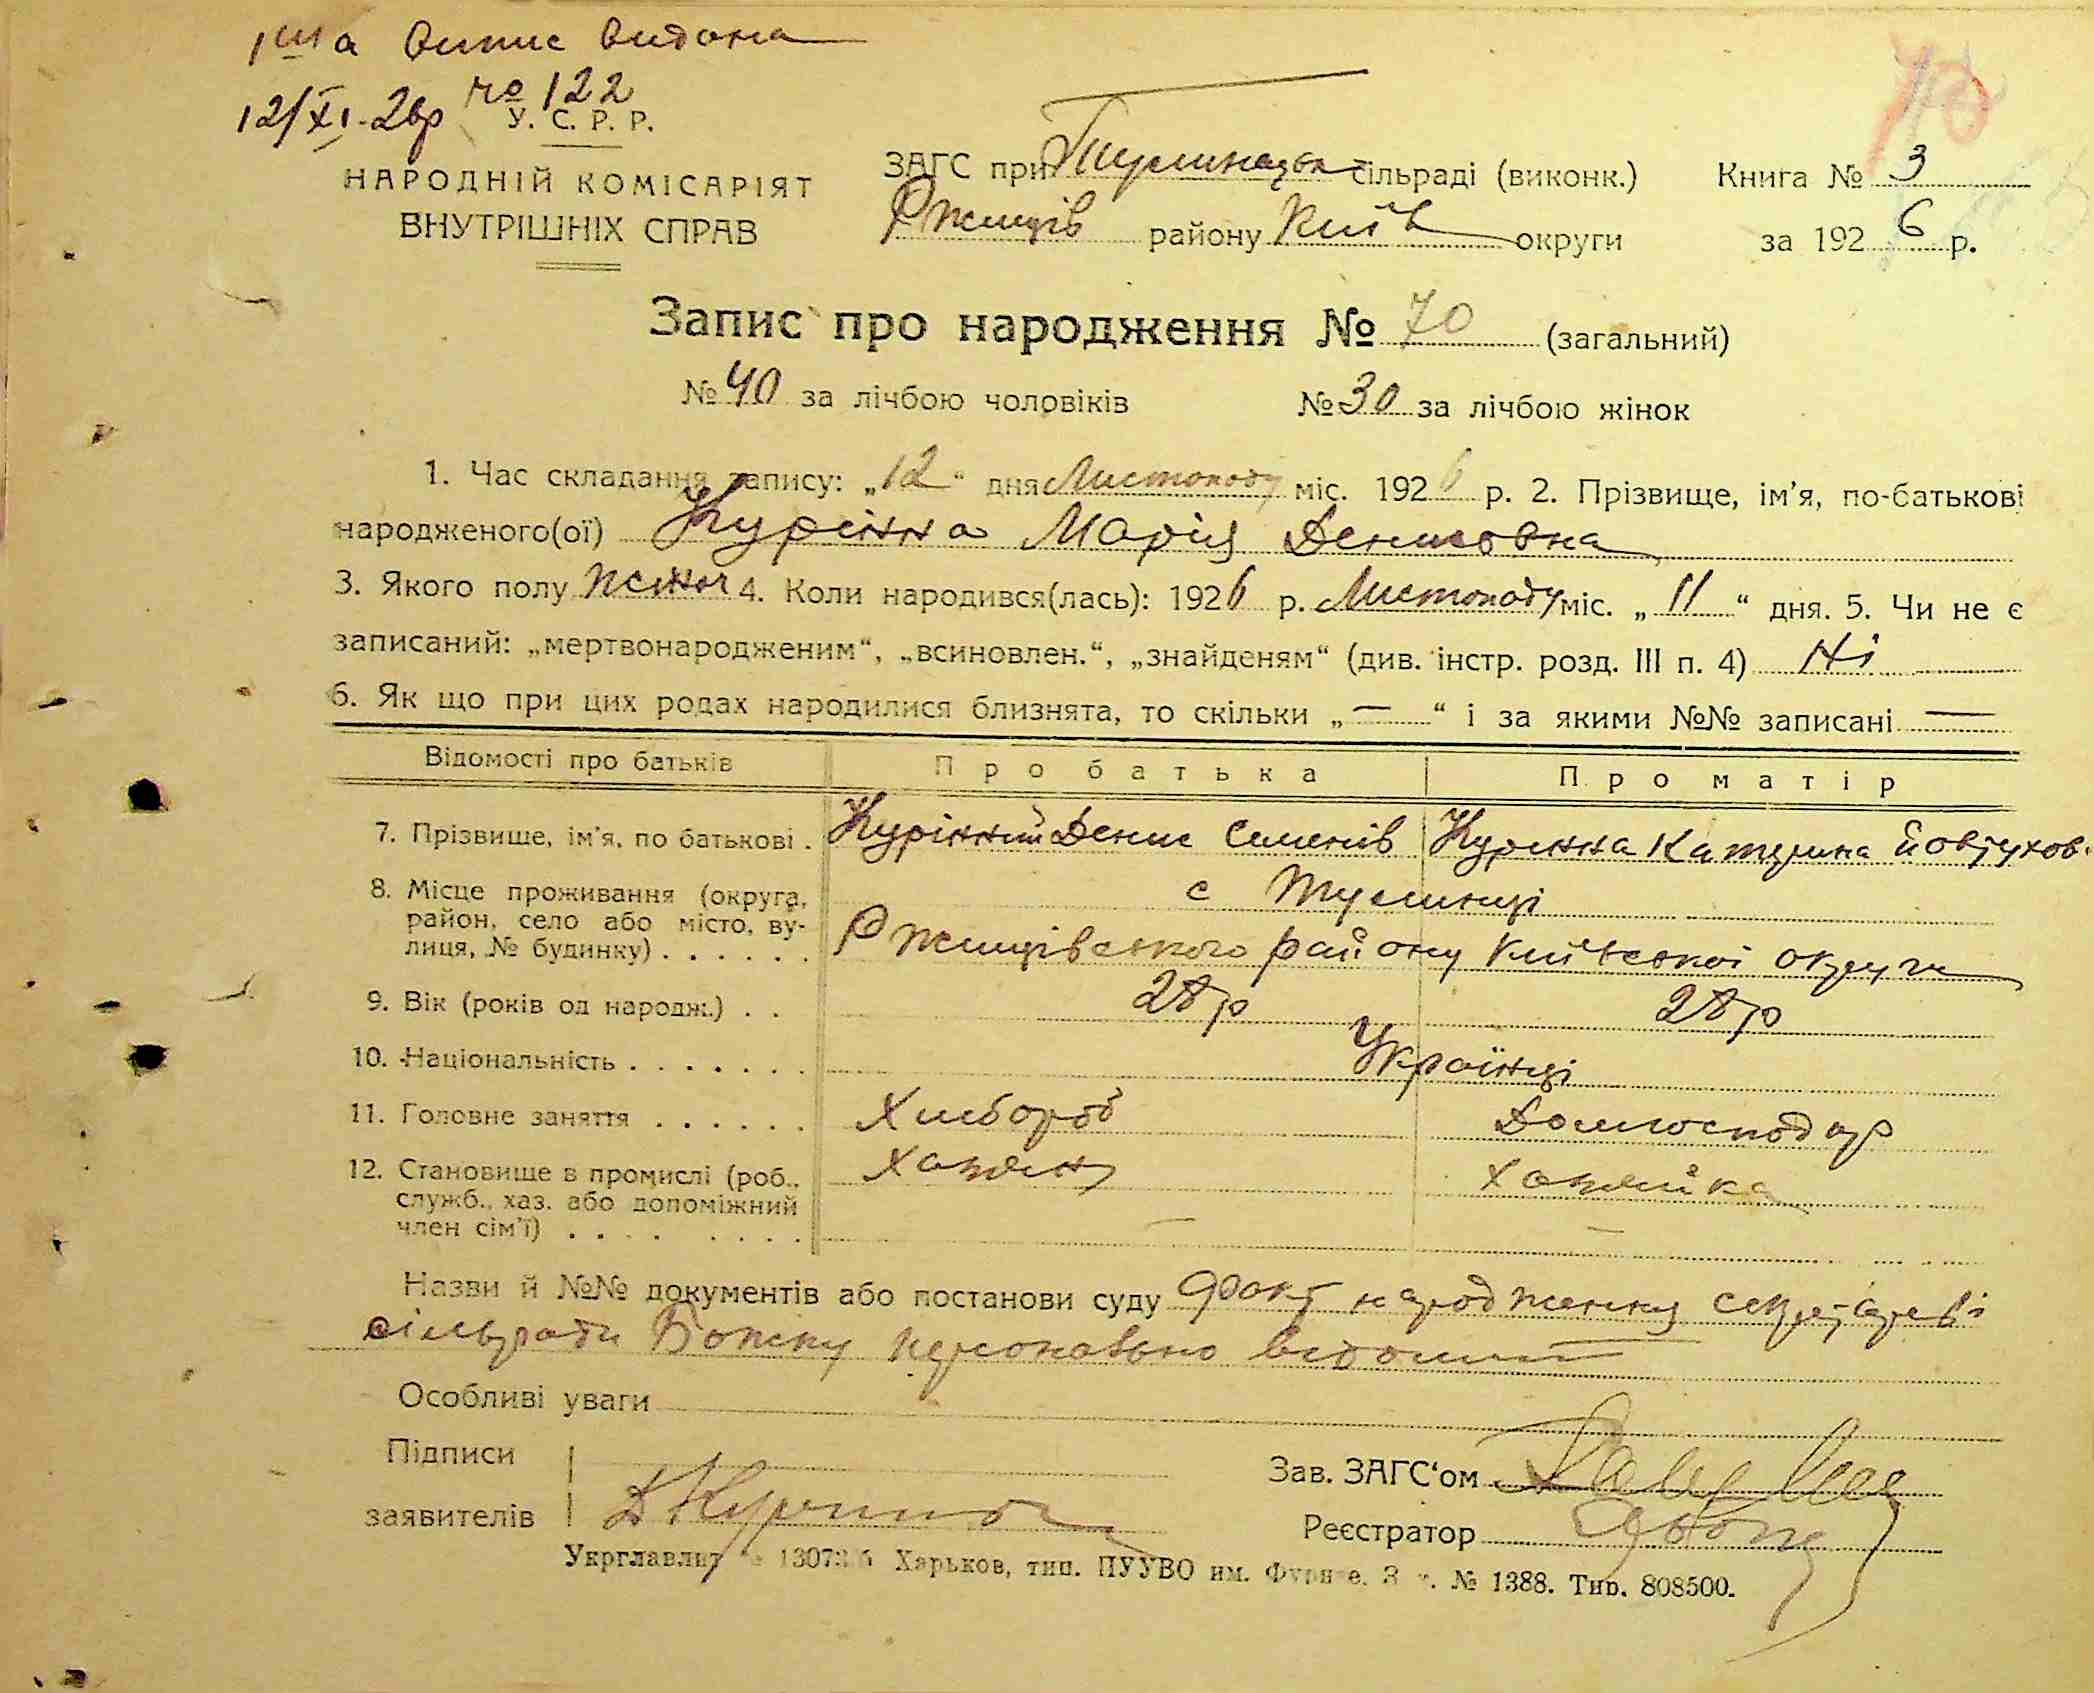 1ша випис видана
12/XI-26р № 122
У. С. Р. Р.
НАРОДНІЙ КОМІСАРІЯТ
ВНУТРІШНІХ СПРАВ
ЗАГС при Тулинецьк сільраді (виконк.)
Ржищів району Київ округи
Книга № 3
за 1926 р.
70
Запис про народження № 70 (загальний)
№ 40 за лічбою чоловіків № 30 за лічбою жінок
1. Час складання запису: „12“ дня Листопаду міс. 1926 р. 2. Прізвище, ім'я, по-батькові
народженого(ої) Курінна Марія Денисовна
3. Якого полу жіноч 4. Коли народився(лась): 1926 р. Листопаду міс. „11“ дня. 5. Чи не є
записаний: „мертвонародженим“, „всиновлен.“, „знайденям“ (див. інстр. розд. III п. 4) Ні
6. Як що при цих родах народилися близнята, то скільки „—“ і за якими №№ записані —
Відомості про батьків Про батька Про матір
7. Прізвище, ім'я, по батькові . Курінний Денис Семенів Курінна Катерина Йовтухов.
8. Місце проживання (округа, с Тулинці
район, село або місто, ву-
лиця, № будинку) . . . . . . Ржищівського району Київської округи
9. Вік (років од народж.) . . 28р 28р
10. Національність . . . . . . . Українці
11. Головне заняття . . . . . . Хлібороб Домгосподар
12. Становище в промислі (роб., Хазяїн Хазяйка
служб., хаз. або допоміжний
член сім'ї) . . . . . . . . — —
Назви й №№ документів або постанови суду Факт народження секретареві
сільради Божку персонально відомий
Особливі уваги
Підписи
заявителів Д Курінной
Зав. ЗАГС'ом
Реєстратор
Укрглавлит № Харьков, тип. ПУУВО им. Фрунзе. № 1388. Тир. 808500.